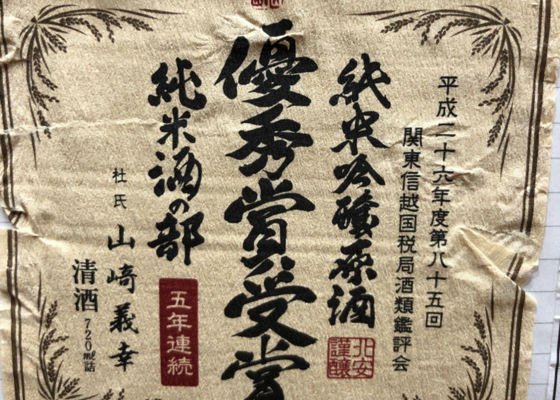 平成二十六年度第八十五回
関東信越国税局酒類鑑評会
純米吟醸原酒
北安
謹醸
優秀賞受賞
純米酒の部
五年連続
杜氏 山﨑義幸
清酒 720㎖詰